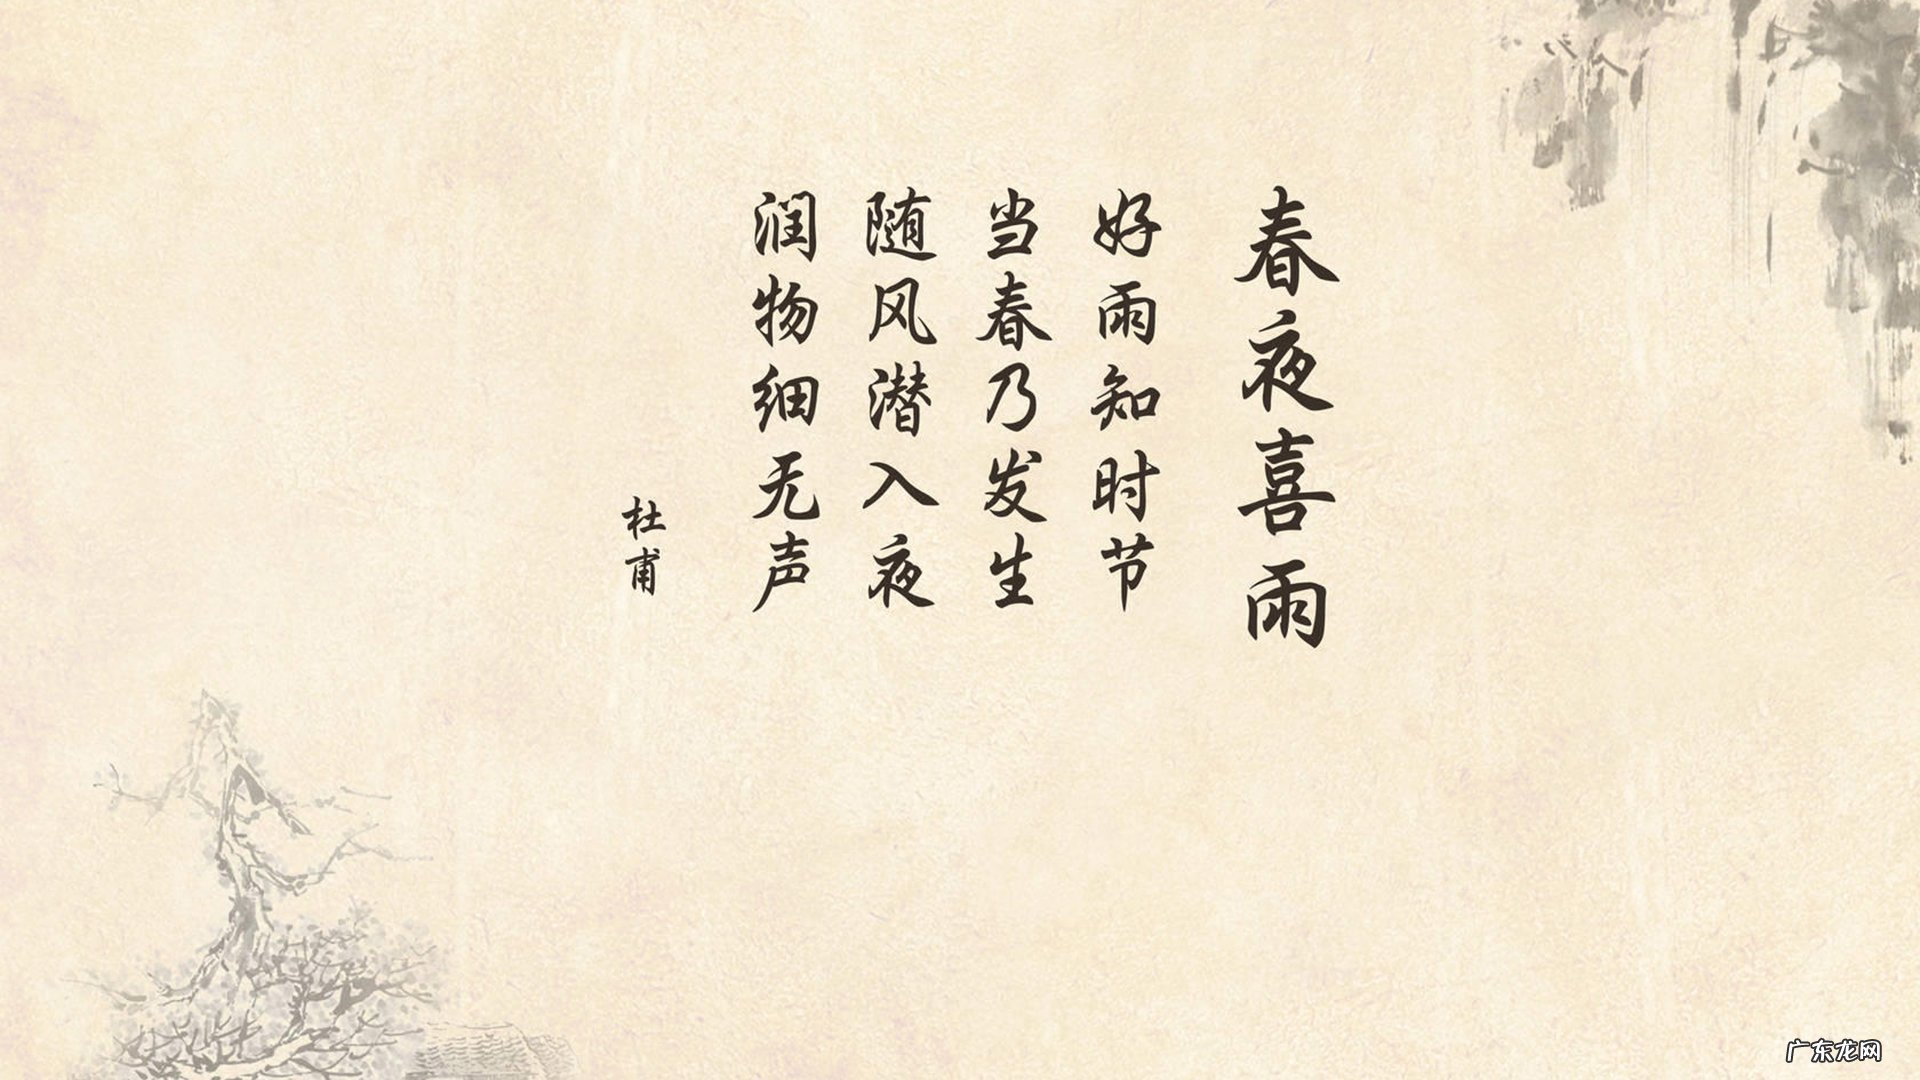 春夜喜雨
好雨知时节
当春乃发生
随风潜入夜
润物细无声
杜甫
广东龙网